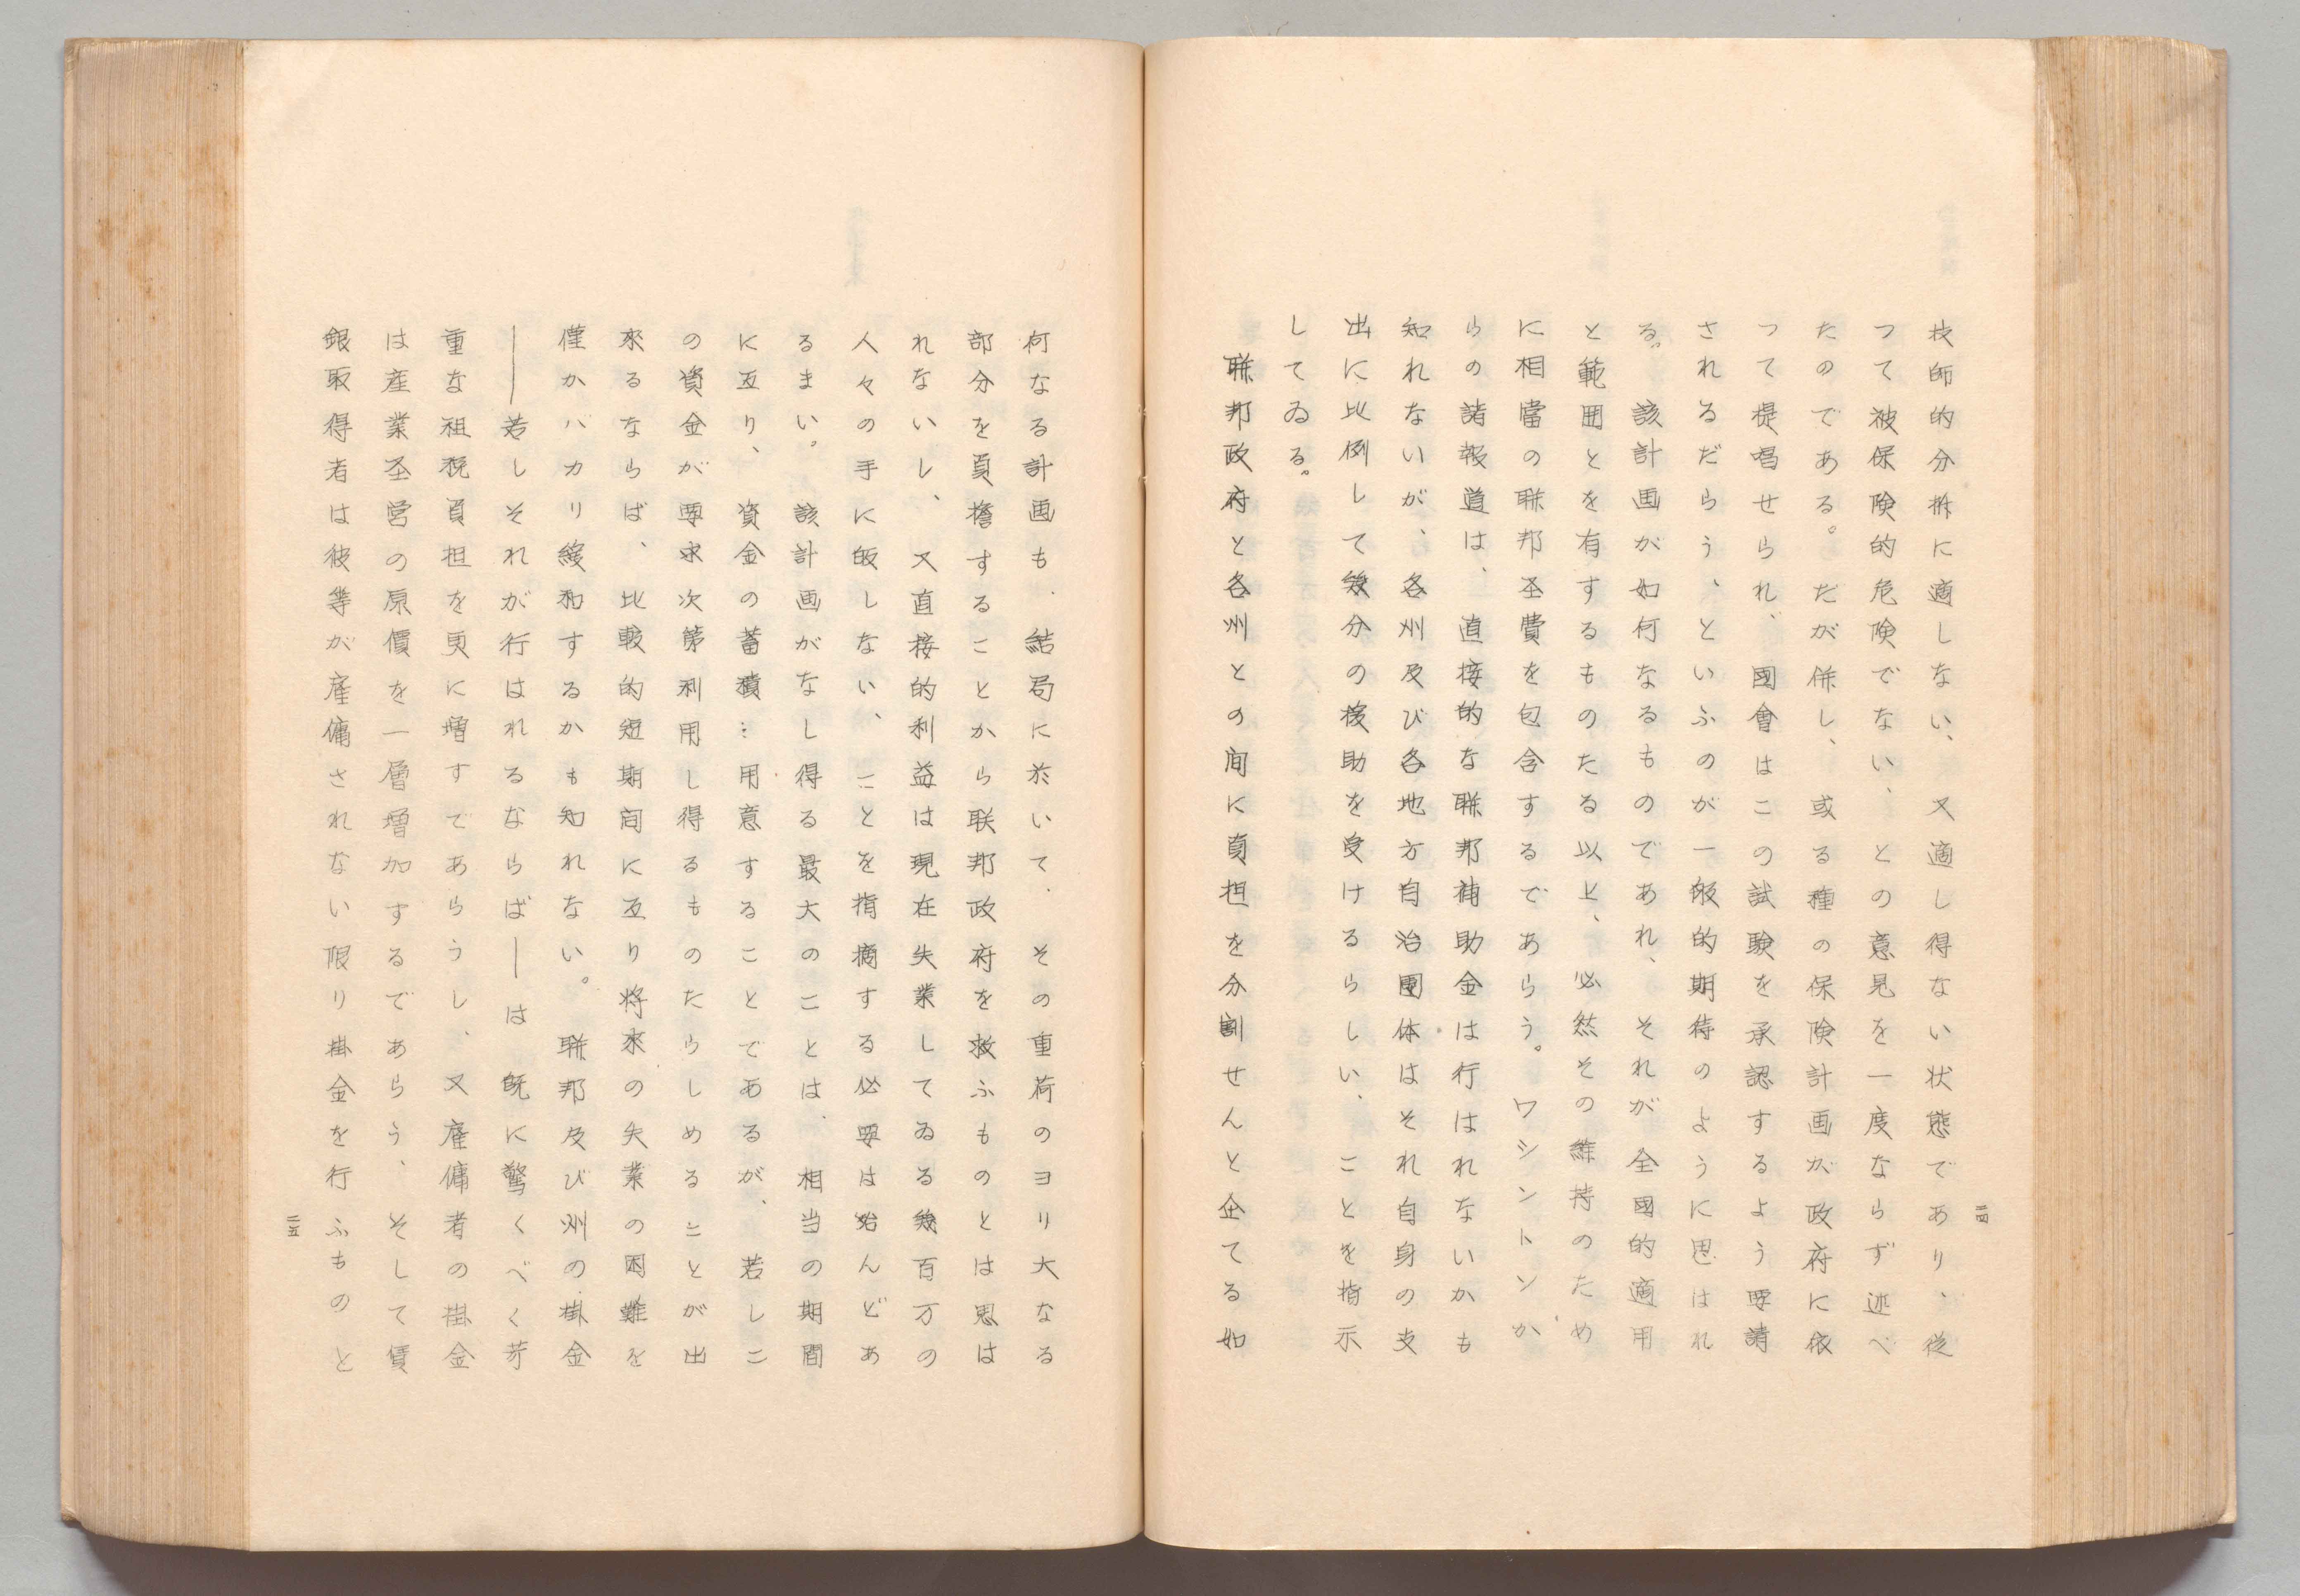 二四
技師的分析に適しない、又適し得ない状態であり、従
つて被保険的危険でない、との意見を一度ならず述べ
たのである。だが併し、或る種の保険計画が政府に依
つて提唱せられ、國會はこの試験を承認するよう要請
されるだらう、といふのが一般的期待のように思はれ
る。該計画が如何なるものであれ、それが全國的適用
と範囲とを有するものたる以上、必然その維持のため
に相當の聯邦圣費を包含するであらう。ワシントンか
らの諸報道は、直接的な聯邦補助金は行はれないかも
知れないが、各州及び各地方自治團体はそれ自身の支
出に比例して幾分の援助を受けるらしい、ことを指示
してゐる。
聯邦政府と各州との间に負担を分割せんと企てる如
何なる計画も、結局に於いて、その重荷のヨリ大なる
部分を負擔することから联邦政府を救ふものとは思は
れないし、又直接的利益は現在失業してゐる幾百万の
人々の手に皈しない、ことを指摘する必要は殆んどあ
るまい。該計画がなし得る最大のことは、相当の期間
に亙り、資金の蓄積…用意することであるが、若しこ
の資金が要求次第利用し得るものたらしめることが出
來るならば、比較的短期间に亙り将來の失業の困難を
僅かバカリ緩和するかも知れない。聯邦及び州の掛金
――若しそれが行はれるならば―は既に驚くべく苛
重な租税負担を更に増すであらうし、又雇傭者の掛金
は産業圣営の原價を一層増加するであらう、そして賃
銀取得者は彼等が雇傭されない限り掛金を行ふものと
二五